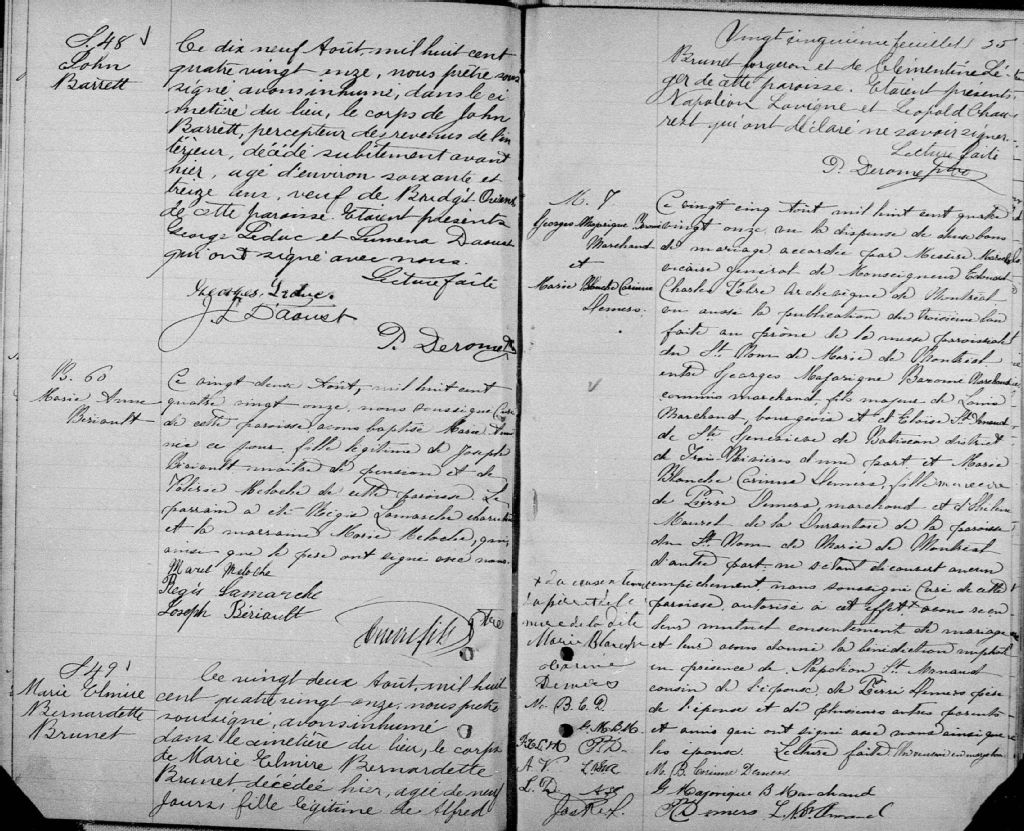 S. 48
John
Barrett
Ce dix neuf Août, mil huit cent
quatre vingt onze, nous prêtre sous
signé avons inhumé, dans le ci
metière du lieu, le corps de John
Barrett, percepteur des revenus de l'in
térieur, décédé subitement avant
hier, agé d'environ soixante et
treize ans, veuf de Bridg't
de cette paroisse. Etaient présents
George Leduc et Lumena Daoust
qui ont signé avec nous.
Lecture faite
Georges Leduc.
L Daoust
P. Derome
B. 60
Marie Anne
Bériault
Ce vingt deux Août, mil huit cent
quatre vingt onze, nous soussigné Curé
de cette paroisse avons baptisé Marie Anne
née ce jour, fille légitime de Joseph
Bériault maître de pension et de
Valérie Meloche de cette paroisse. Le
parrain a été Régis Lamarche
et la marraine Marie Meloche, qui
ainsi que le père ont signé avec nous.
Marie Meloche
Regis Lamarche
Joseph Bériault
Ptre
S. 49
Marie Elmire
Bernardette
Brunet
Ce vingt deux Août, mil huit
cent quatre vingt onze, nous prêtre
soussigné, avons inhumé
dans le cimetière du lieu, le corps
de Marie Elmire Bernardette
Brunet, décédée hier, agée de neuf
jours, fille légitime de Alfred
Vingt cinquième feuillet 25
Brunet forgeron et de Clémentine Lé-
ger de cette paroisse. Etaient présents
Napoléon Lavigne et Léopold Chau
rest qui ont déclaré ne savoir signer.
Lecture faite
P. Derome Ptre
M. 7
Georges Majorique
Marchand
et
Marie Blanche Corinne
Demers.
Ce vingt cinq Août mil huit cent quatre
vingt onze, vu la dispense de deux bans
de mariage accordée par Messire
vicaire général de Monseigneur Edouard
Charles Fabre Archevêque de Montréal
vu aussi la publication du troisième ban
faite au prône de la messe paroissiale
du St. Nom de Marie de Montréal
entre Georges Majorique Marchand
commis marchand, fils majeur de Louis
Marchand, bourgeois et d'Eloïse St. Arnaud
de Ste Geneviève de Batiscan district
de Trois-Rivières d'une part, et Marie
Blanche Corinne Demers, fille mineure
de Pierre Demers marchand et
de la Durantaie de la paroisse
du St. Nom de Marie de Montréal
d'autre part, ne s'étant découvert aucun
empêchement nous soussigné Curé de cette
paroisse, autorisé à cet effet avons reçu
leur mutuel consentement de mariage
et leur avons donné la bénédiction nuptiale
en présence de Napoléon St. Arnaud
cousin de l'époux, de Pierre Demers père
de l'épouse et de plusieurs autres parents
et amis qui ont signé avec nous ainsi que
les époux. Lecture faite
du père et de la
mère de la dite
Marie Blanche
Corinne
Demers
M. B. C. D.
G. M. B. M.
P. D.
A. V.
L. D.
M. B. Corinne Demers
G Majorique B Marchand
P Demers L. N. St. Arnaud